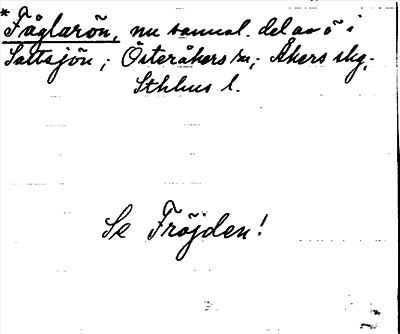 * Fåglarön, nu samml. del av ö i
Saltsjön; Österåkers sn; Åkers skg,
Sthlms l.
Se Fröjden!